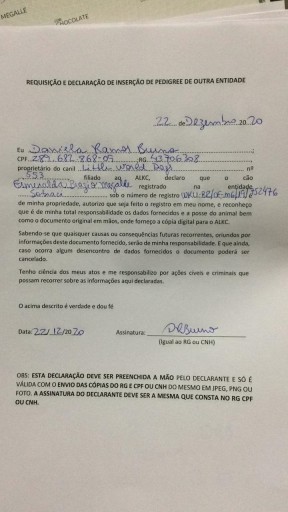 MEGALLE
CHOCOLATE
REQUISIÇÃO E DECLARAÇÃO DE INSERÇÃO DE PEDIGREE DE OUTRA ENTIDADE
22 de Dezembro 2020
Eu Daniela Ramos Bueno
CPF 289.682.868-09 RG 43706308
proprietário do canil Little World Dogs nº
553 filiado ao ALKC, declaro que o cão
Esmeralda Megalle registrado na entidade
Sobraci sob o número de registro
de minha propriedade, autorizo que seja feito o registro em meu nome, e reconheço
que é de minha total responsabilidade os dados fornecidos e a posse do animal bem
como o documento original em mãos, onde forneço a cópia digital para o ALKC.
Sabendo-se que quaisquer causas ou consequências futuras recorrentes, oriundos por
informações deste documento fornecido, serão de minha responsabilidade. E que ainda,
caso ocorra algum desencontro de dados fornecidos o documento poderá ser
cancelado.
Tenho ciência dos meus atos e me responsabilizo por ações cíveis e criminais que
possam recorrer sobre as informações aqui declaradas.
O acima descrito é verdade e dou fé
Data: 22/12/2020 Assinatura: DRBueno
(Igual ao RG ou CNH)
OBS: ESTA DECLARAÇÃO DEVE SER PREENCHIDA A MÃO PELO DECLARANTE E SÓ É
VÁLIDA COM O ENVIO DAS CÓPIAS DO RG E CPF OU CNH DO MESMO EM JPEG, PNG OU
FOTO. A ASSINATURA DO DECLARANTE DEVE SER A MESMA QUE CONSTA NO RG CPF
OU CNH.